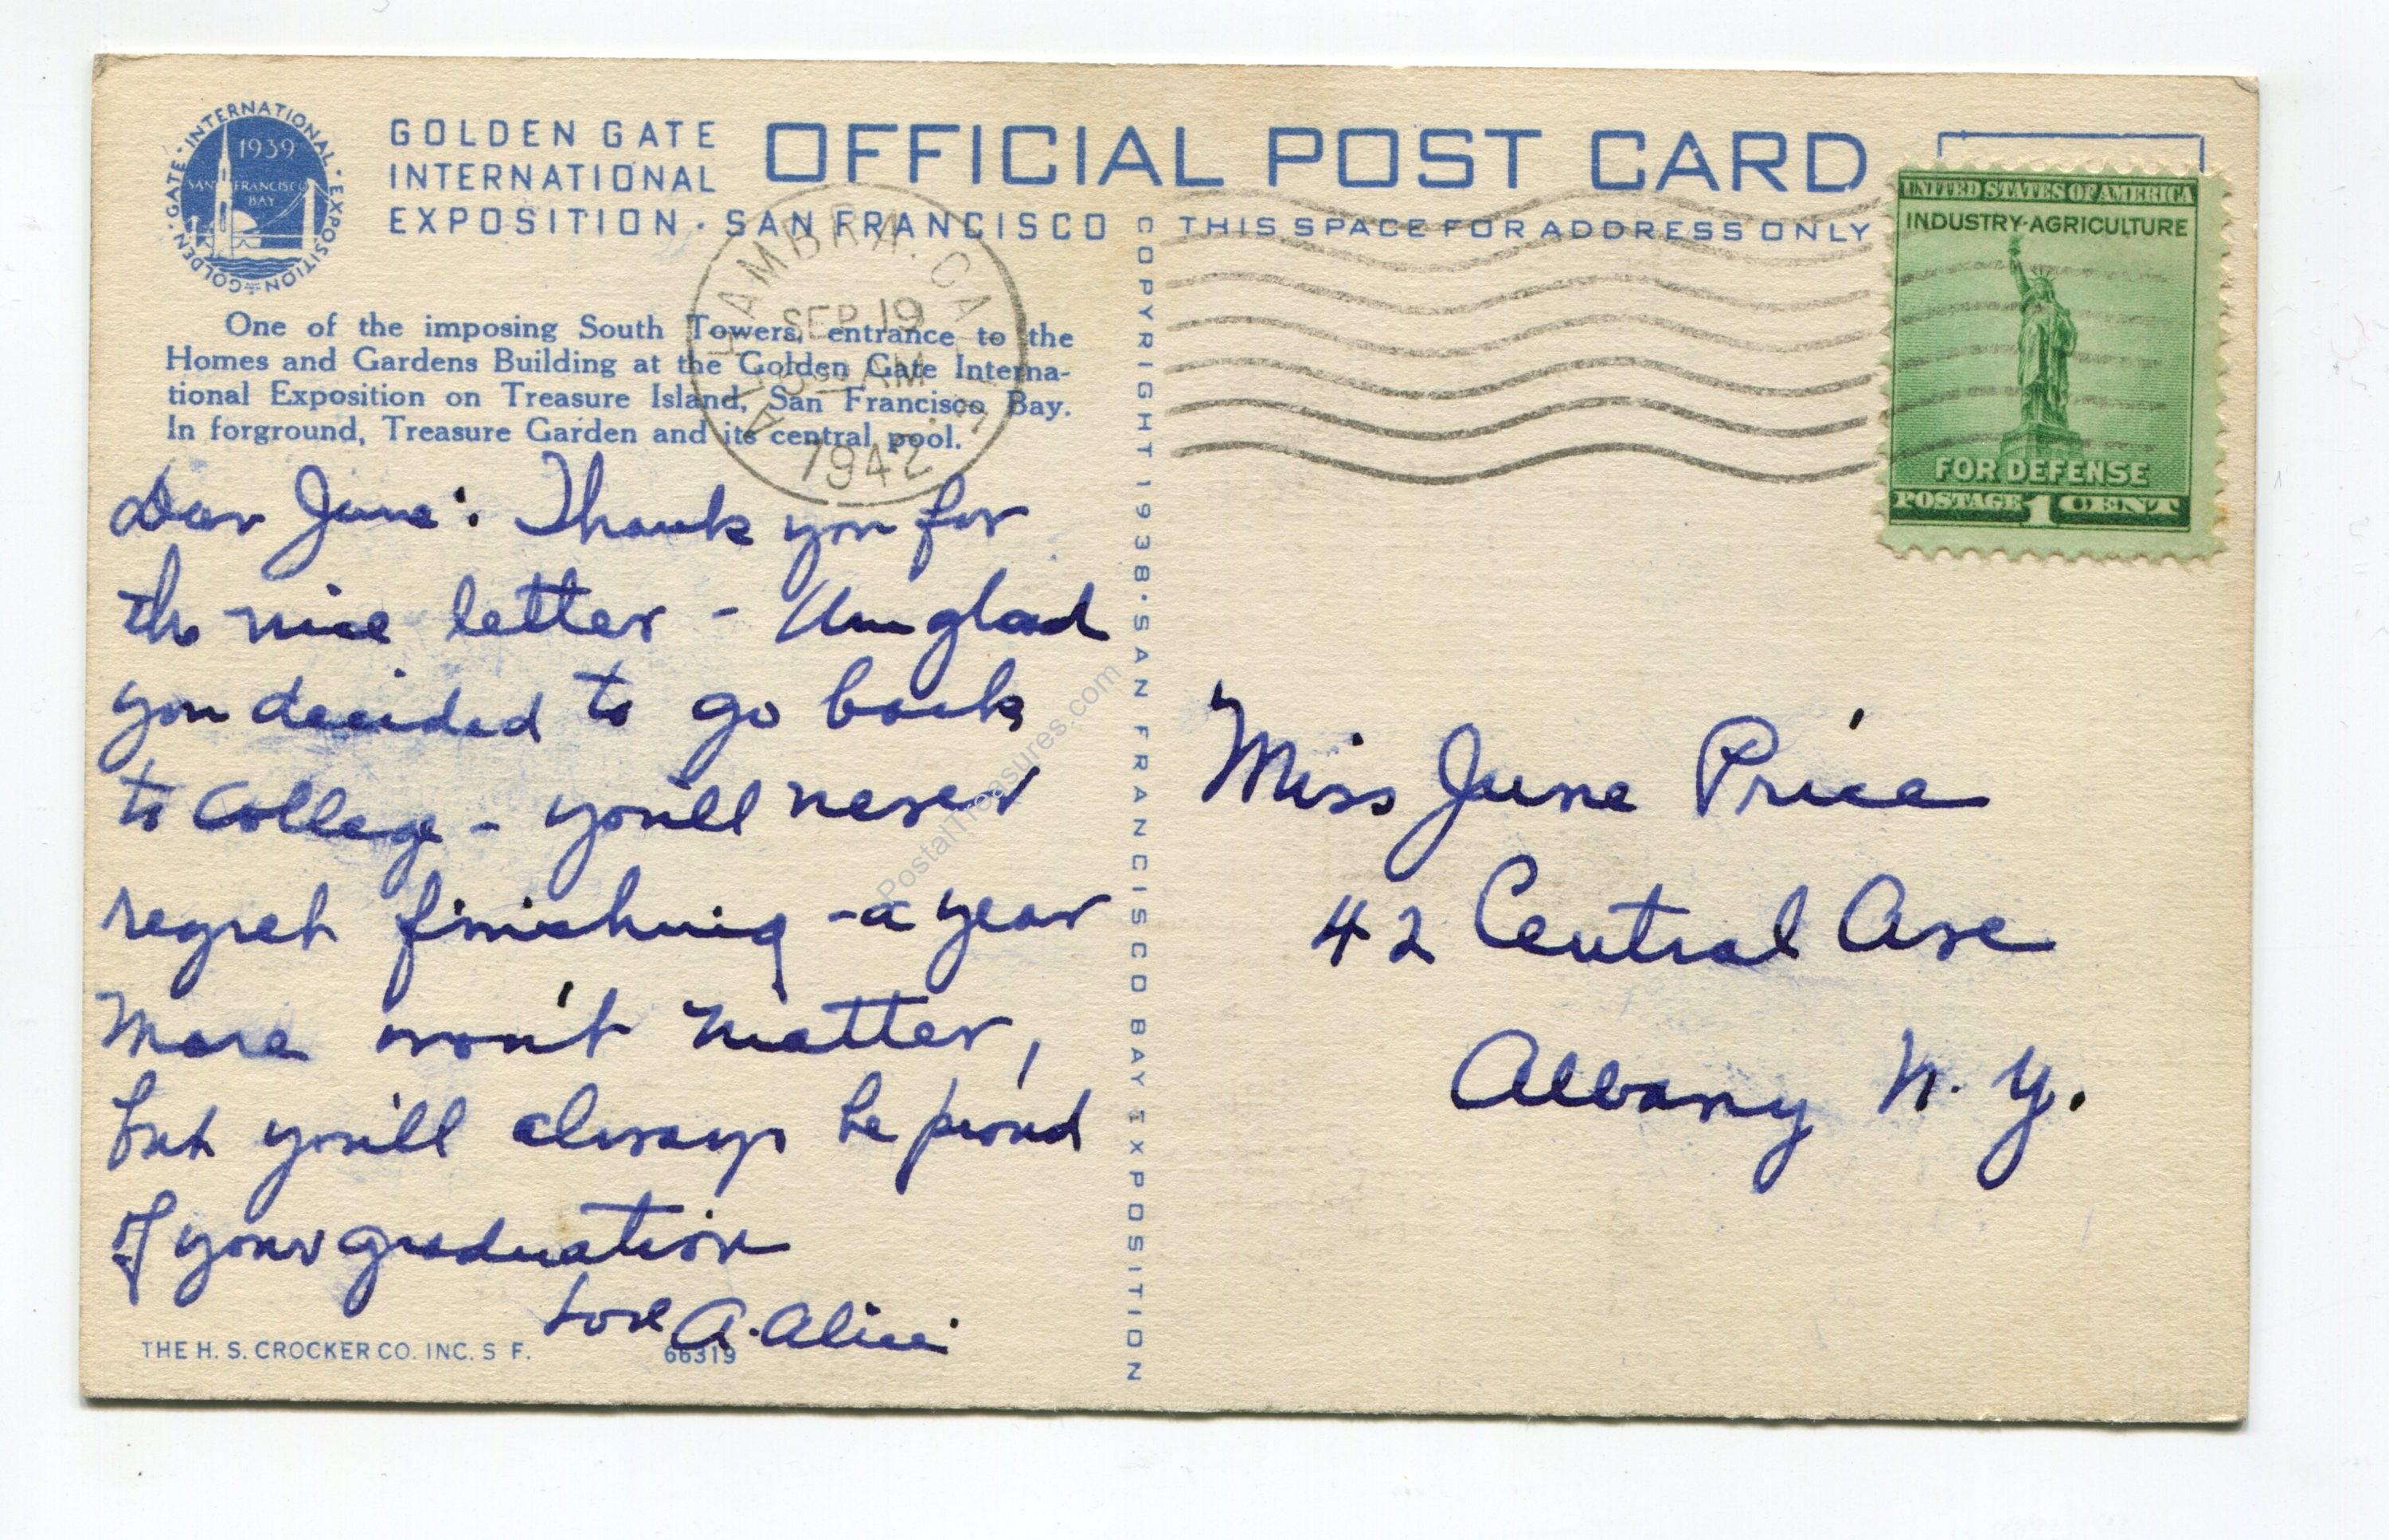 GOLDEN GATE · INTERNATIONAL · EXPOSITION
1939
SAN FRANCISCO
BAY
GOLDEN GATE
INTERNATIONAL
EXPOSITION · SAN FRANCISCO
OFFICIAL POST CARD
THIS SPACE FOR ADDRESS ONLY
One of the imposing South Towers, entrance to the
Homes and Gardens Building at the Golden Gate Interna-
tional Exposition on Treasure Island, San Francisco Bay.
In forground, Treasure Garden and its central pool.
ALHAMBRA, CALIF.
SEP 19
AM
1942
UNITED STATES OF AMERICA
INDUSTRY·AGRICULTURE
FOR DEFENSE
POSTAGE 1 CENT
Dear June: Thank you for
the nice letter - Am glad
you decided to go back
to college - you'll never
regret finishing - a year
more won't matter,
but you'll always be proud
of your graduation
Love A. Alice
THE H. S. CROCKER CO. INC. S F.
66319
COPYRIGHT 1938 · SAN FRANCISCO BAY EXPOSITION
Miss June Price
42 Central Ave
Albany N. Y.
PostalTreasures.com